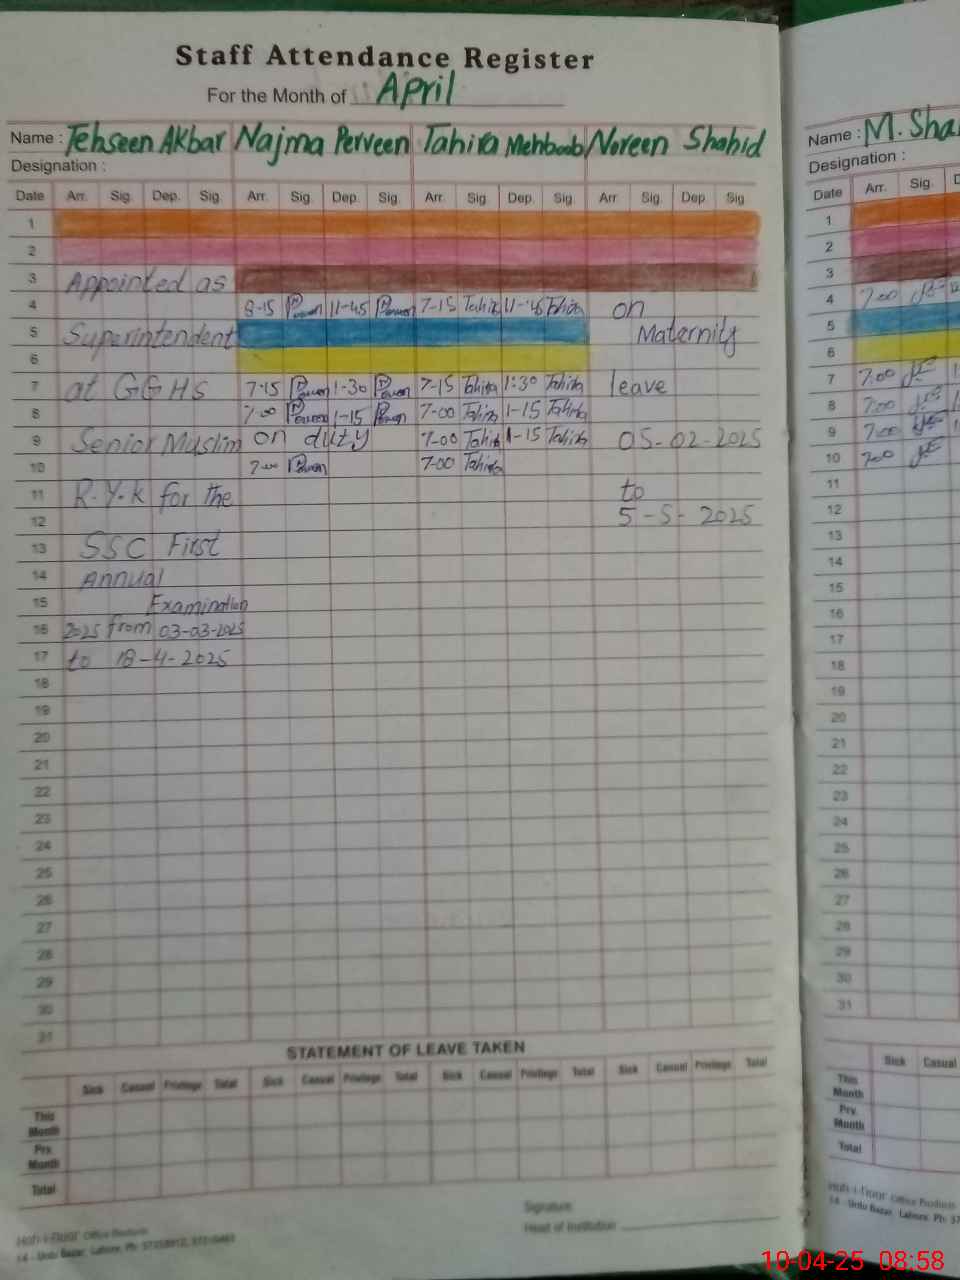 Staff Attendance Register
For the Month of April
Name : Tehseen Akbar Najma Perveen Tahira Mehboob Noreen Shahid
Designation :
Date Arr. Sig. Dep. Sig. Arr. Sig. Dep. Sig. Arr. Sig. Dep. Sig. Arr. Sig. Dep. Sig
1
2
3 Appointed as
4 8-15 11-45 7-15 Tahira 11-45 Tahira on
5 Superintendent Maternity
6
7 at GGHS 7-15 1-30 7-15 Tahira 1:30 Tahira leave
8 7-00 1-15 7-00 Tahira 1-15 Tahira
9 Senior Muslim on duty 7-00 Tahira 1-15 Tahira 05-02-2025
10 7-00 7-00 Tahira
11 R.Y.K for the to
12 5-5-2025
13 SSC First
14 Annual
15 Examination
16 2025 from 03-03-2025
17 to 18-4-2025
18
19
20
21
22
23
24
25
26
27
28
29
30
31
STATEMENT OF LEAVE TAKEN
Sick Casual Privilege Total Sick Casual Privilege Total Sick Casual Privilege Total Sick Casual Privilege Total
This Month
Prv. Month
Total
Signature
Head of Institution
Office Products
14 - Urdu Bazar, Lahore. Ph:
Name : M. Sha
Designation :
Date Arr. Sig. D
1
2
3
4 7:00
5
6
7 7:00
8 7:00
9 7:00
10 7:00
11
12
13
14
15
16
17
18
19
20
21
22
23
24
25
26
27
28
29
30
31
Sick Casual
This Month
Prv. Month
Total
Office Products
14 - Urdu Bazar, Lahore. Ph:
10-04-25 08:58